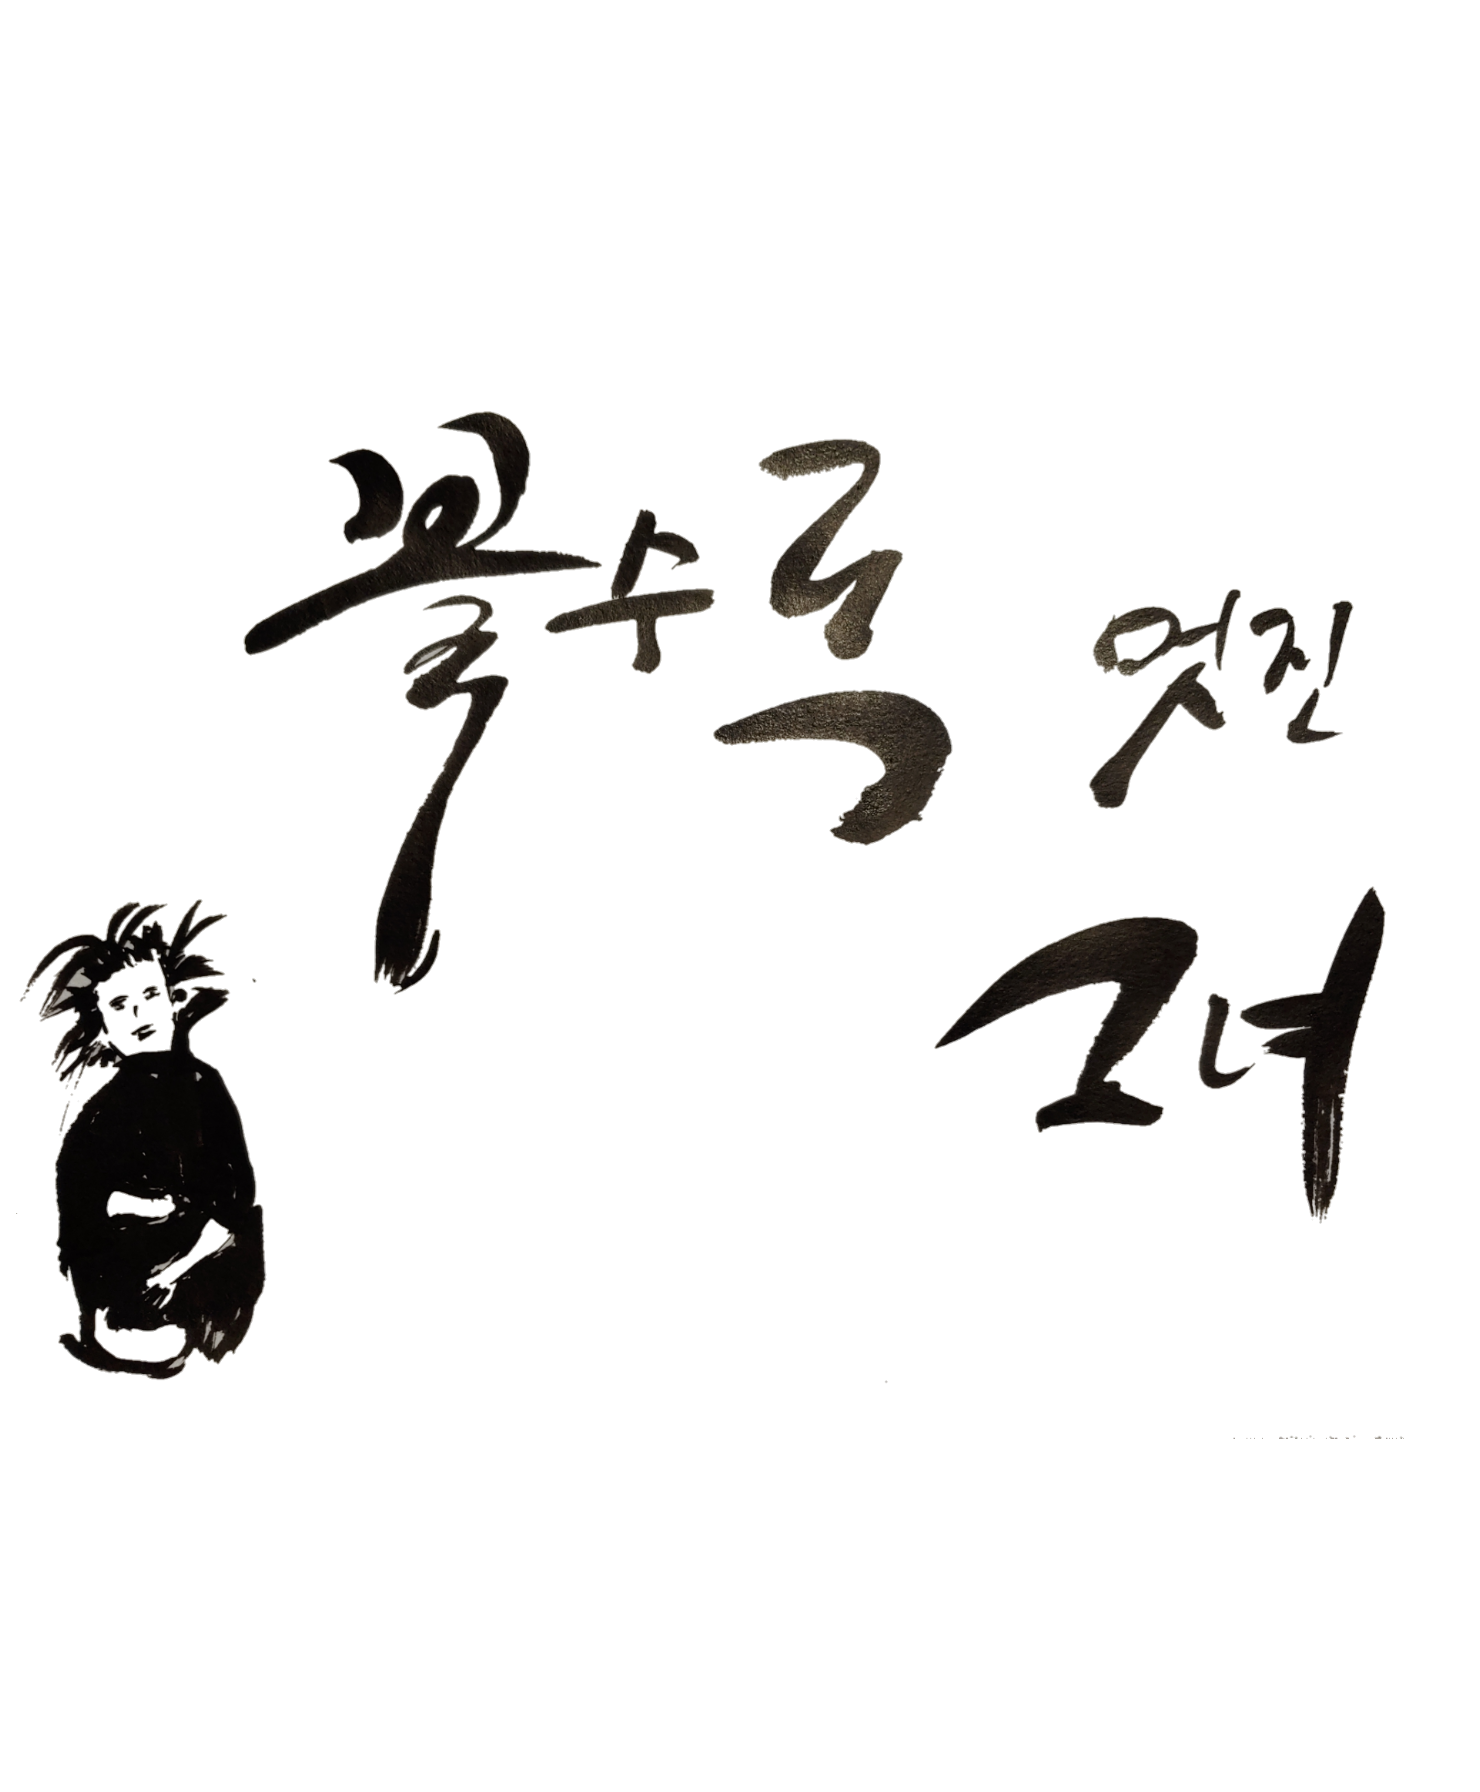 볼수록 멋진
그녀